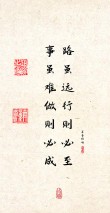 路虽远行则必至
事虽难做则必成